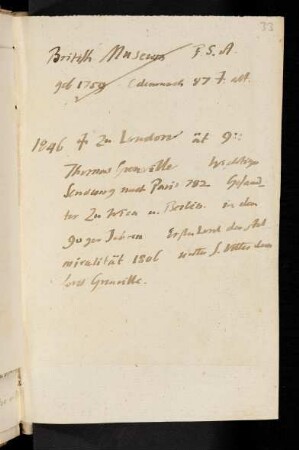 33
British Museum F.S.A.
geb 1759 (demnach 87 J. alt.
1846 † Zu London ät 9
Thomas Grenville Wichtige
Sendung nach Paris 782 Gesand
ter Zu Wien u. Berlin. in den
90ger Jahren Erster Lord der Ad
miralität 1806 unter s. Vetter dem
Lord Grenville.